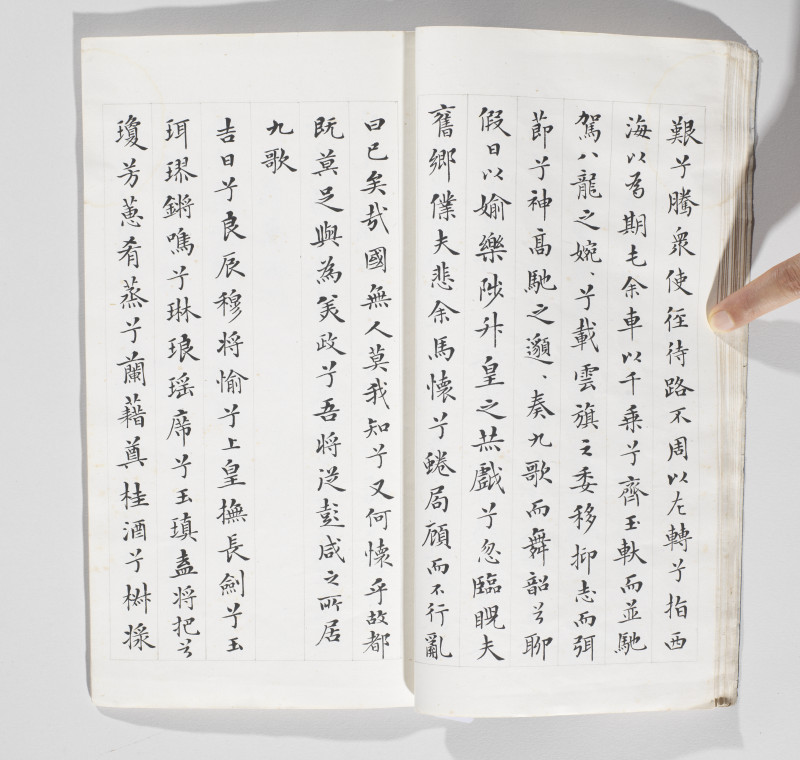 艱兮騰衆使徑待路不周以左轉兮指西
海以爲期屯余車以千乘兮齊玉軑而並馳
駕八龍之婉、兮載雲旗之委移抑志而弭
節兮神高馳之邈、奏九歌而舞韶兮聊
假日以媮樂陟升皇之赫戲兮忽臨睨夫
舊鄉僕夫悲余馬懷兮蜷局顧而不行亂
曰已矣哉國無人莫我知兮又何懷乎故都
既莫足與為美政兮吾將從彭咸之所居
九歌
吉日兮良辰穆將愉兮上皇撫長劍兮玉
珥璆鏘鳴兮琳琅瑤席兮玉瑱盍將把兮
瓊芳蕙肴蒸兮蘭藉奠桂酒兮椒漿